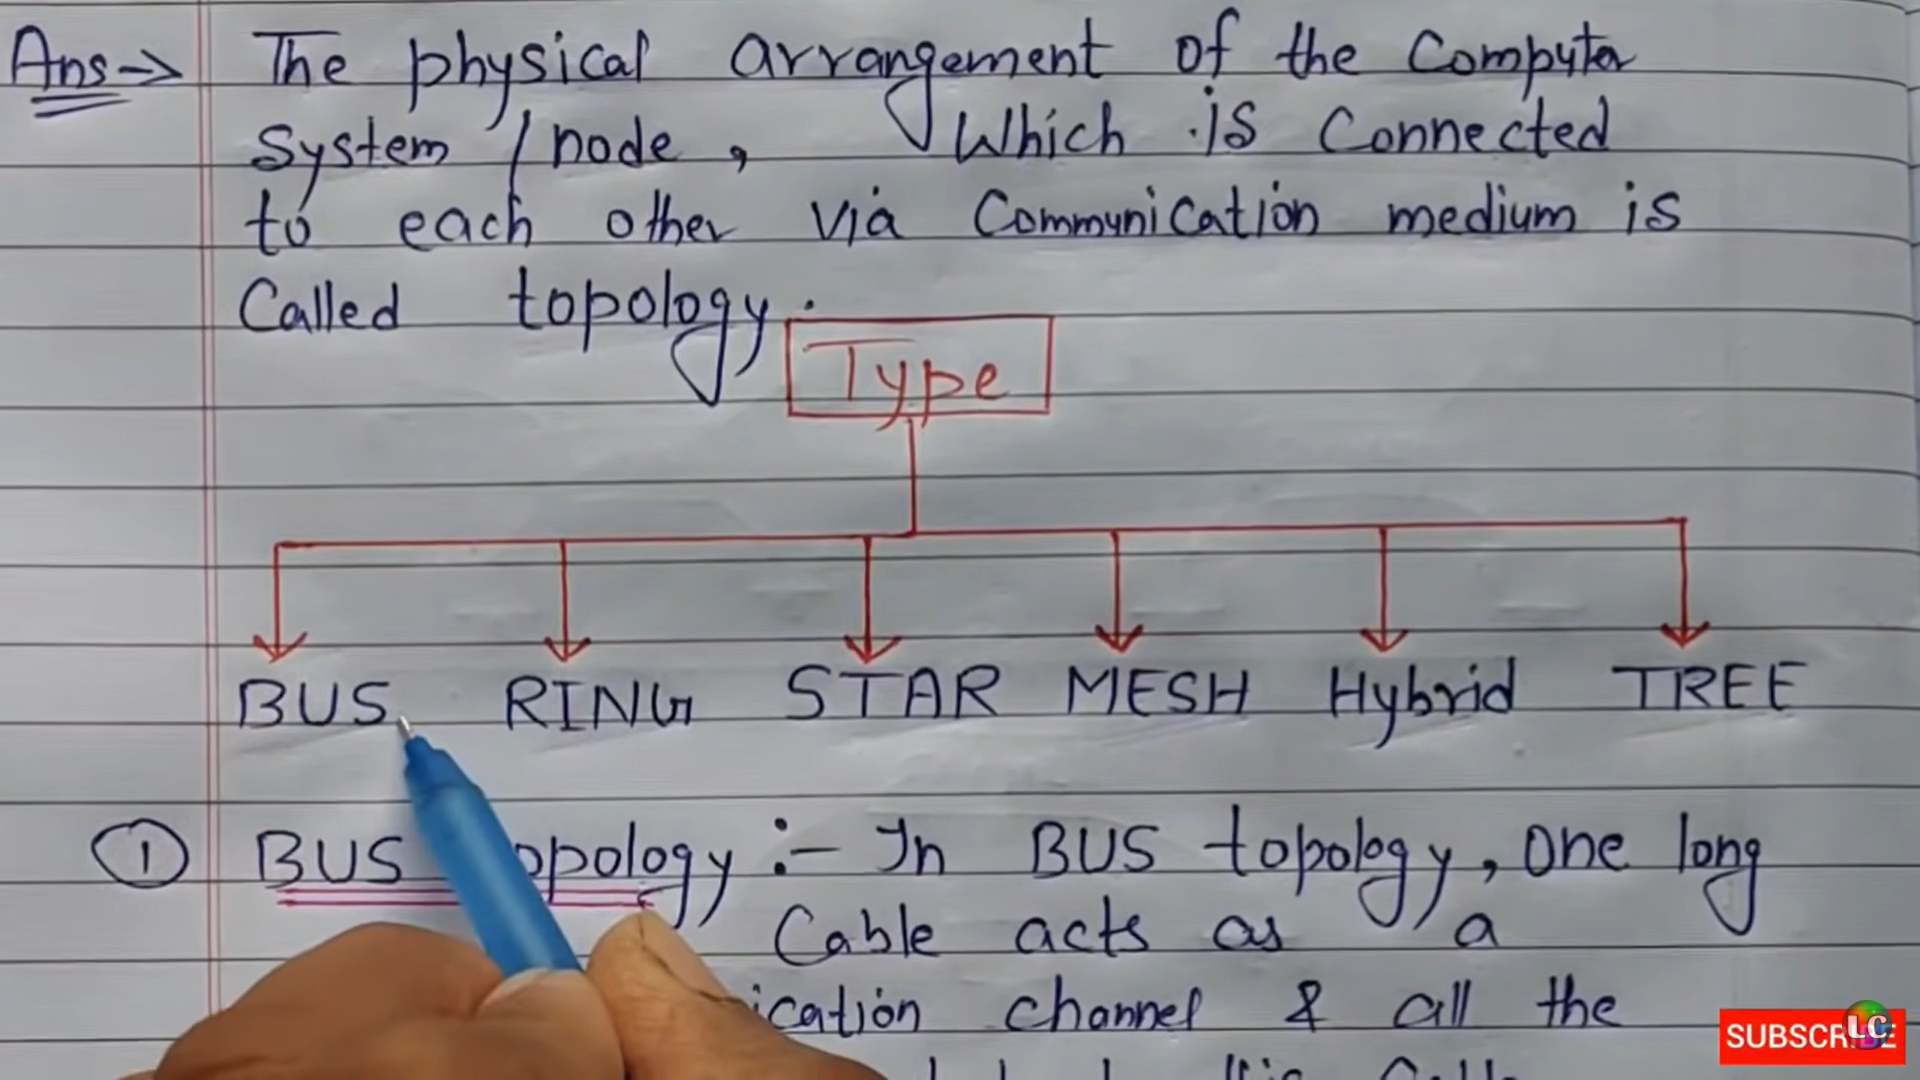 Ans→ The physical arrangement of the Computer
System / node, Which is Connected
to each other via Communication medium is
Called topology.
Type
BUS RING STAR MESH Hybrid TREE
① BUS opology :- In BUS topology, One long
Cable acts as a
ication channel & all the
SUBSCRIBE LC